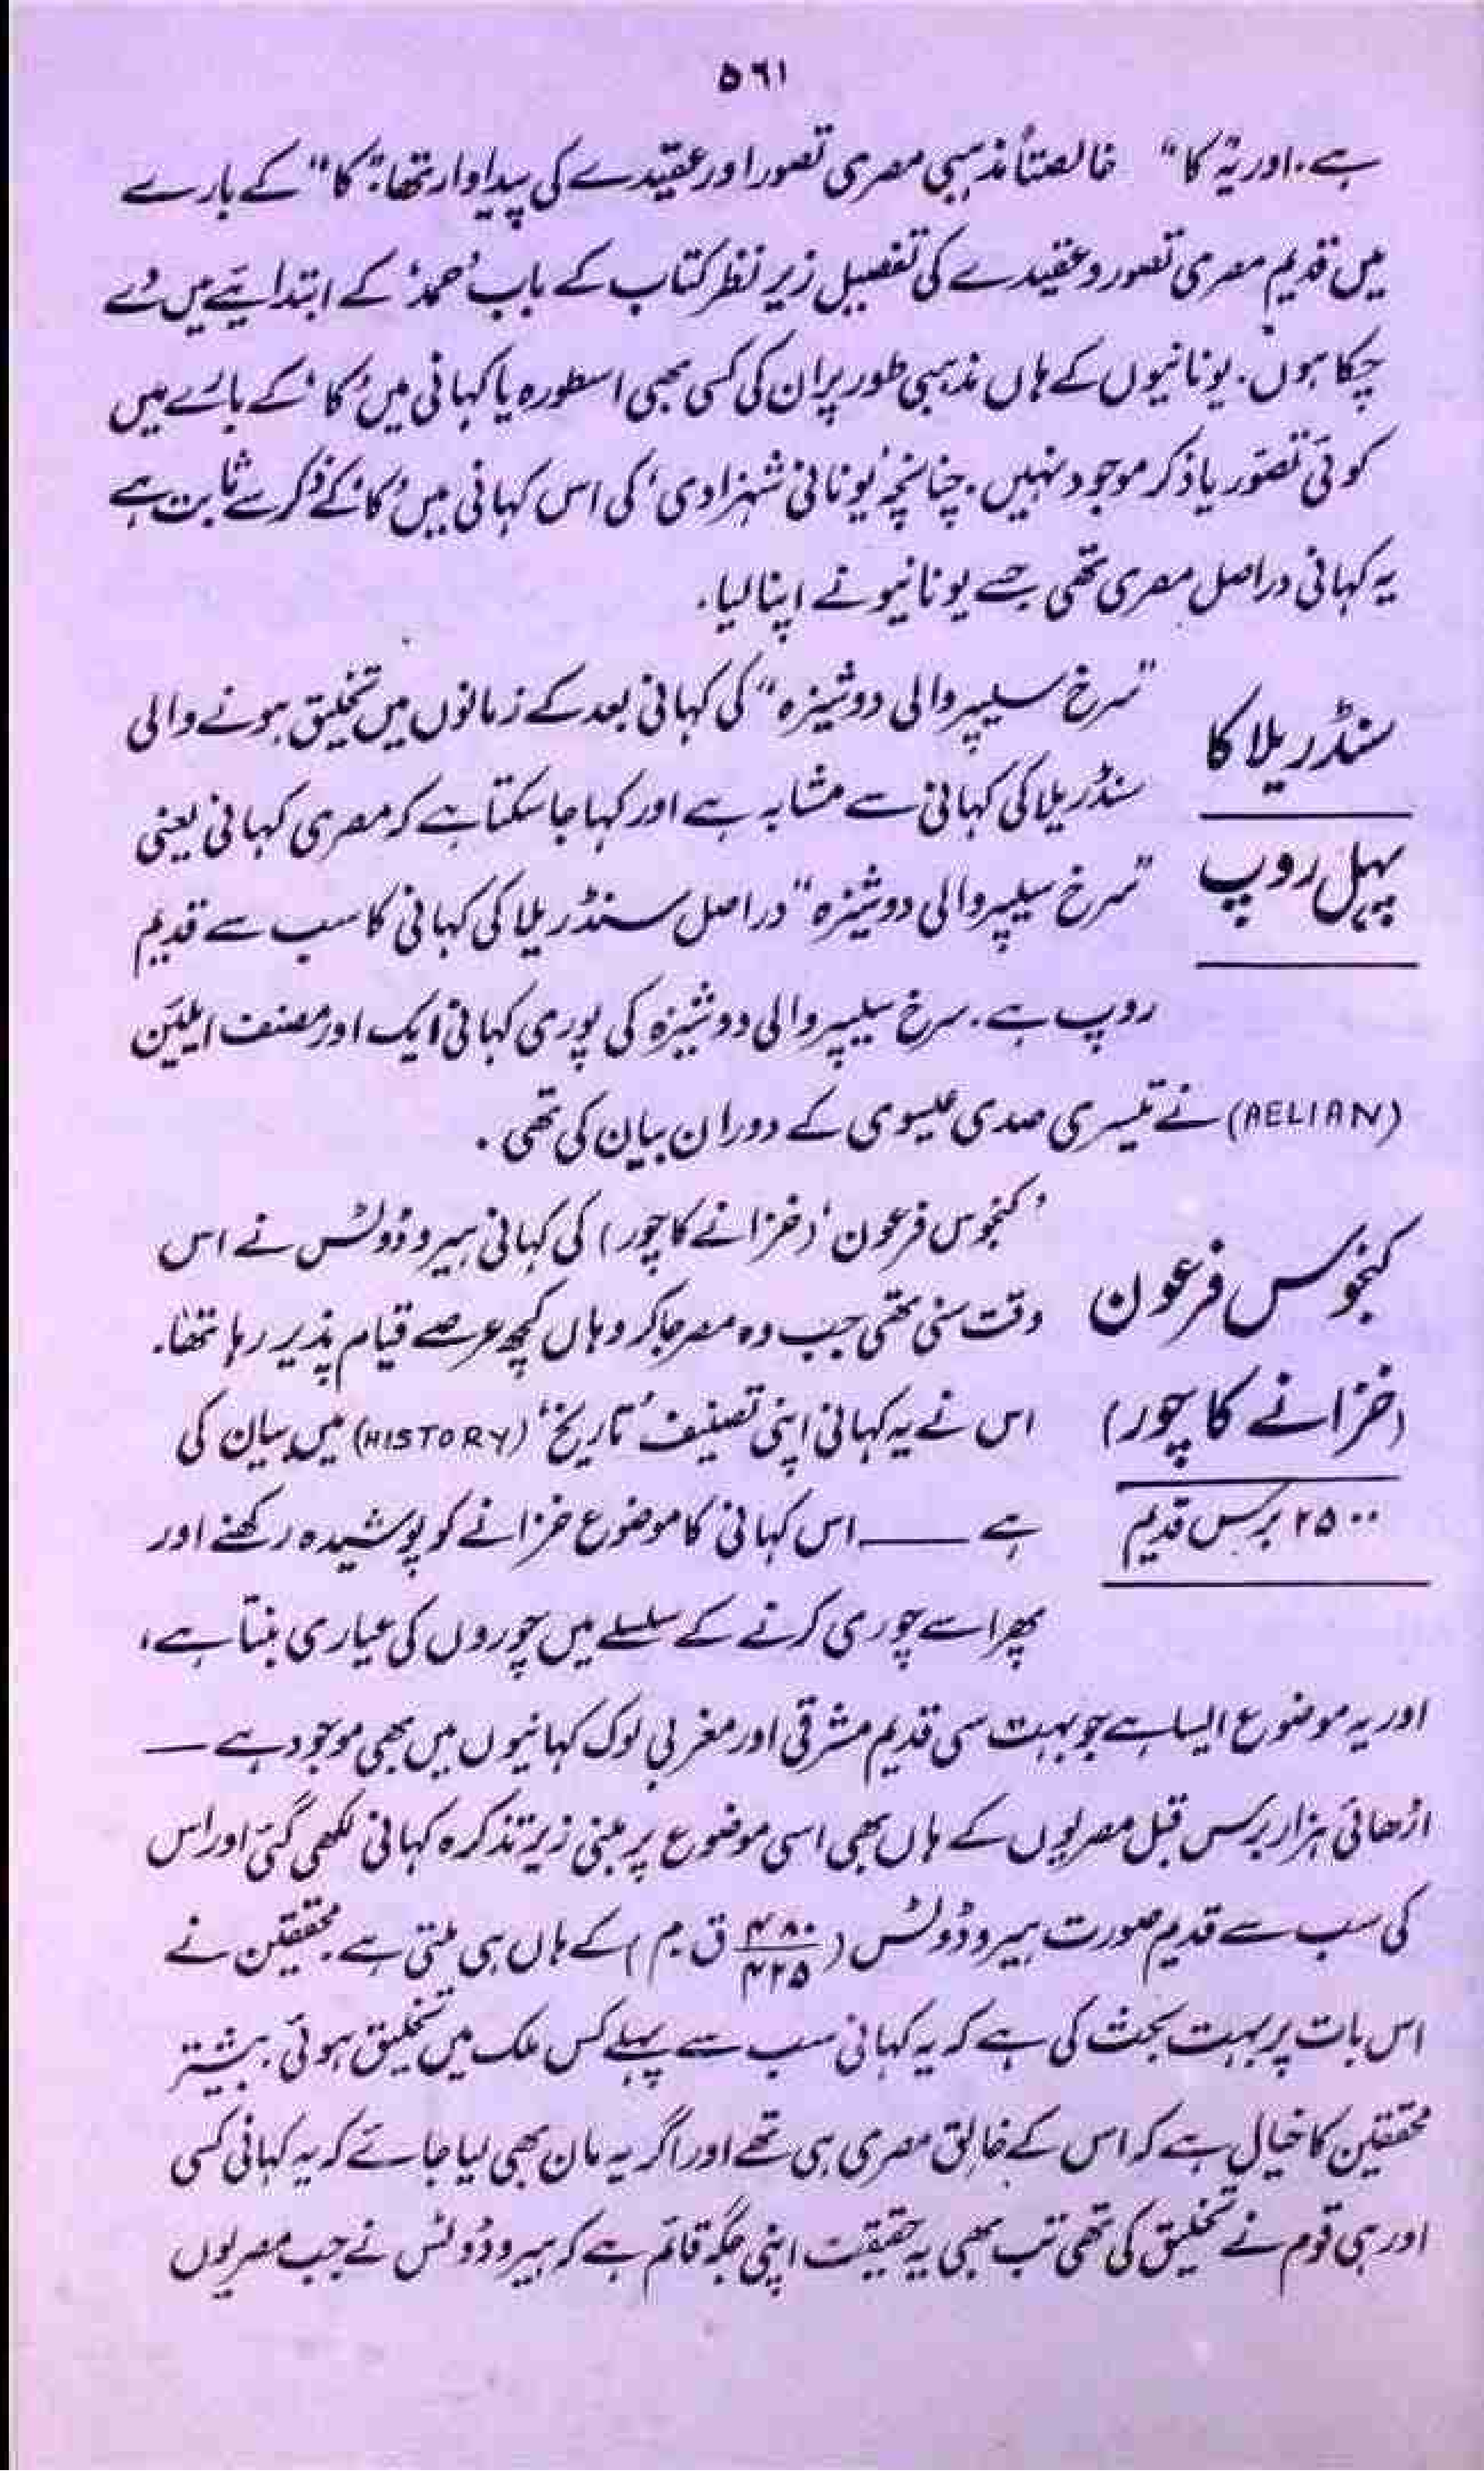 ۵۶۱
ہے۔ اور یہ "کا" خالصتاً مذہبی مصری تصور اور عقیدے کی پیداوار تھا۔ "کا" کے بارے
میں قدیم مصری تصور و عقیدے کی تفصیل زیر نظر کتاب کے باب 'حمد' کے ابتدائیے میں دے
چکا ہوں۔ یونانیوں کے ہاں مذہبی طور پر ان کی کسی بھی اسطورہ یا کہانی میں 'کا' کے بارے میں
کوئی تصور یا ذکر موجود نہیں۔ چنانچہ 'یونانی شہزادی' کی اس کہانی میں 'کا' کے ذکر سے ثابت ہے
یہ کہانی دراصل مصری تھی جسے یونانیو نے اپنا لیا۔
سنڈریلا کا
پہل روپ
"سرخ سلیپر والی دوشیزہ" کی کہانی بعد کے زمانوں میں تخلیق ہونے والی
سنڈریلا کی کہانی سے مشابہ ہے اور کہا جا سکتا ہے کہ مصری کہانی یعنی
"سرخ سلیپر والی دوشیزہ" دراصل سنڈریلا کی کہانی کا سب سے قدیم
روپ ہے۔ سرخ سلیپر والی دوشیزہ کی پوری کہانی ایک اور مصنف ایلیئن
(AELIAN) نے تیسری صدی عیسوی کے دوران بیان کی تھی۔
کنجوس فرعون
(خزانے کا چور)
۲۵۰۰ برس قدیم
'کنجوس فرعون' (خزانے کا چور) کی کہانی ہیروڈوٹس نے اس
وقت سنی تھی جب وہ مصر جا کر وہاں کچھ عرصے قیام پذیر رہا تھا۔
اس نے یہ کہانی اپنی تصنیف 'تاریخ' (HISTORY) میں بیان کی
ہے —— اس کہانی کا موضوع خزانے کو پوشیدہ رکھنے اور
پھر اسے چوری کرنے کے سلسلے میں چوروں کی عیاری بنتا ہے،
اور یہ موضوع ایسا ہے جو بہت سی قدیم مشرقی اور مغربی لوک کہانیوں میں بھی موجود ہے —
اڑھائی ہزار برس قبل مصریوں کے ہاں بھی اسی موضوع پر مبنی زیر تذکرہ کہانی لکھی گئی اور اس
کی سب سے قدیم صورت ہیروڈوٹس (۴۸۰/۴۲۵ ق۔م) کے ہاں ہی ملتی ہے۔ محققین نے
اس بات پر بہت بحث کی ہے کہ یہ کہانی سب سے پہلے کس ملک میں تخلیق ہوئی۔ بیشتر
محققین کا خیال ہے کہ اس کے خالق مصری ہی تھے اور اگر یہ مان بھی لیا جائے کہ یہ کہانی کسی
اور ہی قوم نے تخلیق کی تھی تب بھی یہ حقیقت اپنی جگہ قائم ہے کہ ہیروڈوٹس نے جب مصریوں